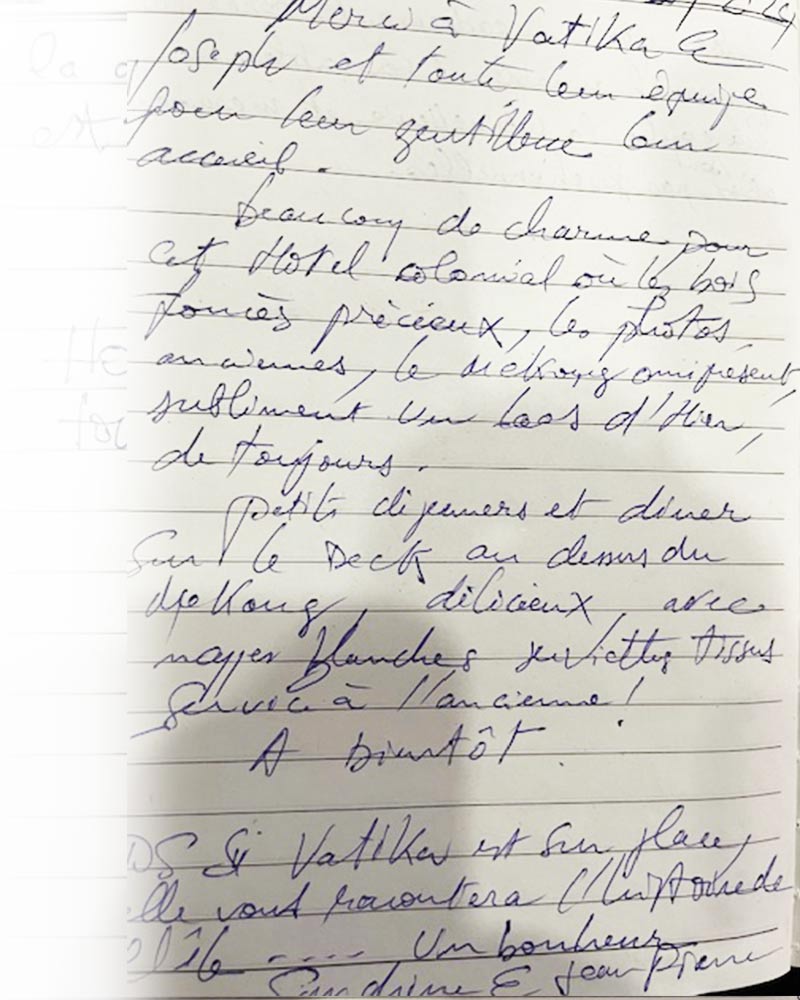 Merci à Vatika &
Joseph et toute leur équipe
pour leur gentillesse leur
accueil.
Beaucoup de charme pour
cet Hotel colonial où les bois
foncés précieux, les photos
anciennes, le Mékong omniprésent,
subliment un Laos d'Hier,
de toujours.
petits déjeuners et diner
sur le Deck au dessus du
Mékong, délicieux avec
nappes blanches serviettes tissus
service à l'ancienne !
A bientôt.
PS Si Vatika est sur place,
elle vous racontera l'histoire de
l'île .... Un bonheur
Sandrine & Jean Pierre